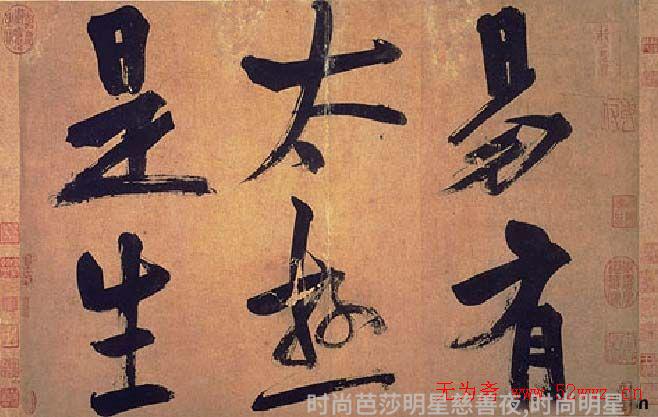 易有
太極
是生
无为斋 www.52wwz.cn
时尚芭莎明星慈善夜,时尚明星